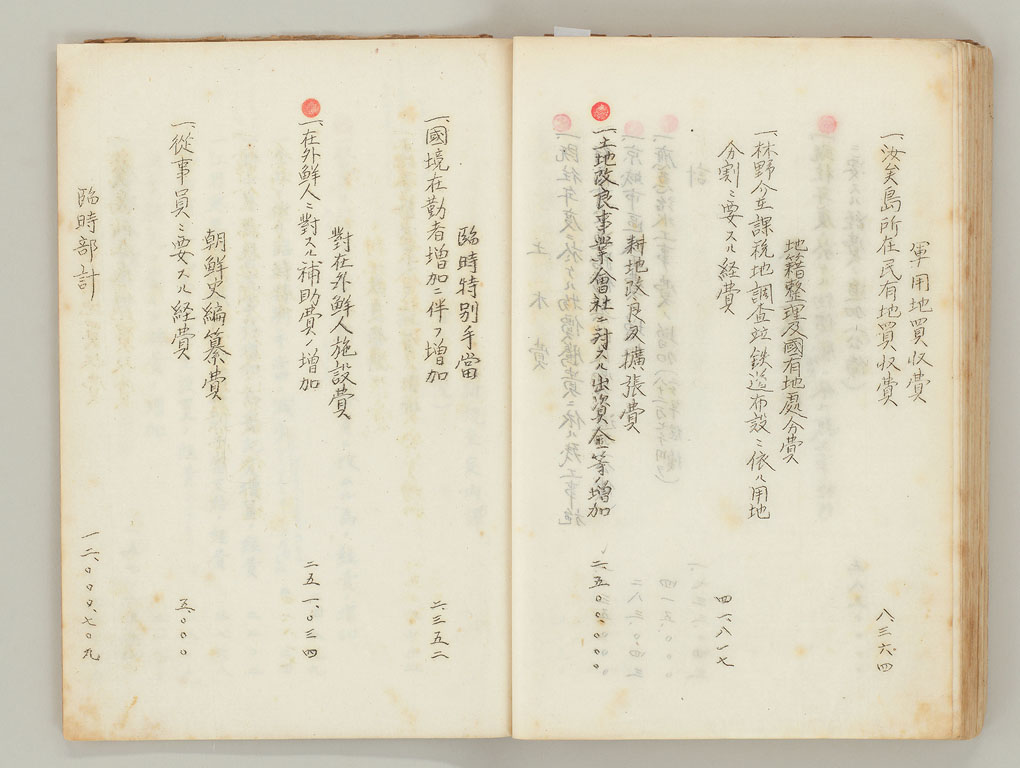 軍用地買収費
一、汝矣島所在民有地買収費
八三六四
地籍整理及國有地處分費
一、林野今並課税地調査竝鉄道布設ニ依ル用地
分割ニ要スル経費
四一、八一七
耕地改良及擴張費
一、土地改良事業會社ニ対スル出資金等ノ増加
二、五〇〇、〇〇〇
臨時特別手當
一、國境在勤者増加ニ伴フ増加
二三五二
對在外鮮人施設費
一、在外鮮人ニ對スル補助費ノ増加
二五一、〇三四
朝鮮史編纂費
一、從事員ニ要スル経費
五、〇〇〇
臨時部計
一二、〇〇〇、七〇九